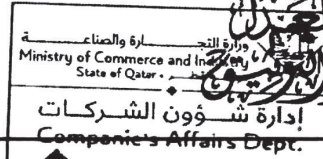 وزارة التجـــــــارة والصناعـــــة
Ministry of Commerce and Industry
State of Qatar
إدارة شـــؤون الشـركـات
Companie's Affairs Dept.